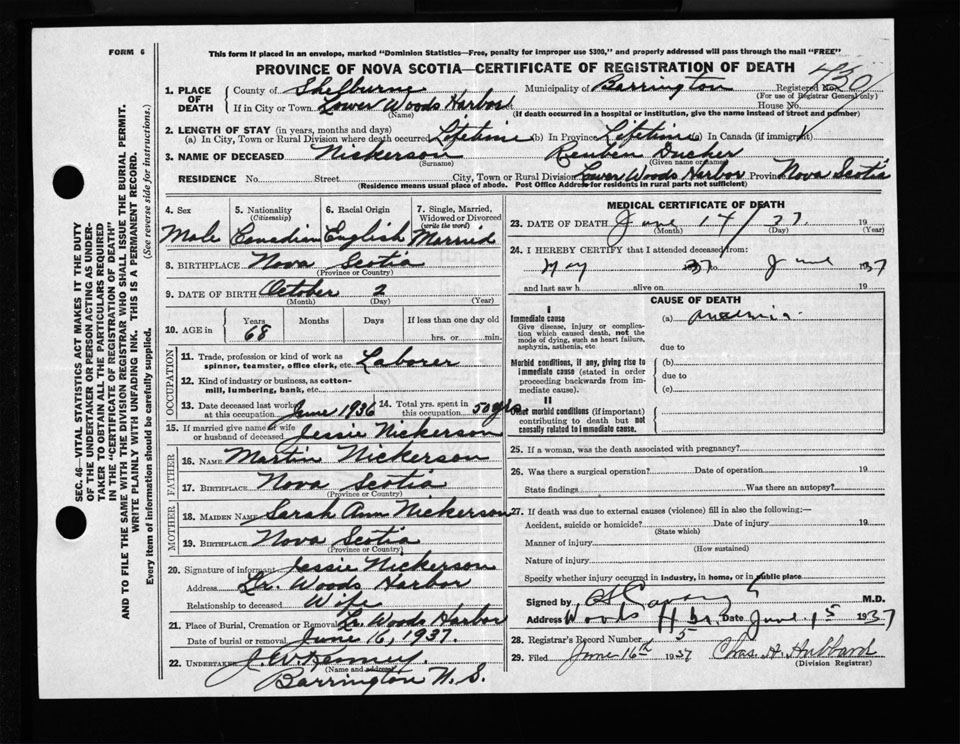 FORM 6
This form if placed in an envelope, marked "Dominion Statistics—Free, penalty for improper use $300," and properly addressed will pass through the mail "FREE"
PROVINCE OF NOVA SCOTIA—CERTIFICATE OF REGISTRATION OF DEATH
1. PLACE OF DEATH
County of Shelburne Municipality of Barrington Registered No.
(For use of Registrar General only)
If in City or Town Lower Woods Harbor House No.
(Name) (If death occurred in a hospital or institution, give the name instead of street and number)
2. LENGTH OF STAY (in years, months and days)
(a) In City, Town or Rural Division where death occurred Lifetime (b) In Province Lifetime (c) In Canada (if immigrant)
3. NAME OF DECEASED Nickerson Reuben
(Surname) (Given name or names)
RESIDENCE No. Street City, Town or Rural Division Lower Woods Harbor Province Nova Scotia
(Residence means usual place of abode. Post Office Address for residents in rural parts not sufficient)
4. Sex 5. Nationality (Citizenship) 6. Racial Origin 7. Single, Married, Widowed or Divorced (write the word)
Male Canadian English Married
8. BIRTHPLACE Nova Scotia
(Province or Country)
9. DATE OF BIRTH October 2
(Month) (Day) (Year)
10. AGE in Years Months Days If less than one day old
68 hrs. or min.
OCCUPATION
11. Trade, profession or kind of work as spinner, teamster, office clerk, etc. Laborer
12. Kind of industry or business, as cotton-mill, lumbering, bank, etc.
13. Date deceased last worked at this occupation June 1936 14. Total yrs. spent in this occupation 50 yrs
15. If married give name of wife or husband of deceased Jessie Nickerson
FATHER
16. NAME Martin Nickerson
17. BIRTHPLACE Nova Scotia
(Province or Country)
MOTHER
18. MAIDEN NAME Sarah Ann Nickerson
19. BIRTHPLACE Nova Scotia
(Province or Country)
20. Signature of informant Jessie Nickerson
Address Lr. Woods Harbor
Relationship to deceased Wife
21. Place of Burial, Cremation or Removal Lr. Woods Harbor
Date of burial or removal June 16, 1937.
22. UNDERTAKER J. W. Kenney.
(Name and address)
Barrington N. S.
MEDICAL CERTIFICATE OF DEATH
23. DATE OF DEATH June 14/37. 19
(Month) (Day) (Year)
24. I HEREBY CERTIFY that I attended deceased from:
May 37 June 1937
and last saw h alive on 19
CAUSE OF DEATH
I
Immediate cause (a) anaemia.
Give disease, injury or complication which caused death, not the mode of dying, such as heart failure, asphyxia, asthenia, etc.
due to
Morbid conditions, if any, giving rise to immediate cause (stated in order proceeding backwards from immediate cause).
(b)
due to
(c)
II
Other morbid conditions (if important) contributing to death but not causally related to immediate cause.
25. If a woman, was the death associated with pregnancy?
26. Was there a surgical operation? Date of operation 19
State findings Was there an autopsy?
27. If death was due to external causes (violence) fill in also the following:—
Accident, suicide or homicide? Date of injury 19
(State which)
Manner of injury
(How sustained)
Nature of injury
Specify whether injury occurred in industry, in home, or in public place
Signed by M.D.
Address Woods Hbr. Date June 15 1937
28. Registrar's Record Number 5
29. Filed June 16th 1937 Chas. H. Hubbard
(Division Registrar)
SEC. 46—VITAL STATISTICS ACT MAKES IT THE DUTY
OF THE UNDERTAKER OR PERSON ACTING AS UNDER-
TAKER TO OBTAIN ALL THE PARTICULARS REQUIRED
IN THE "CERTIFICATE OF REGISTRATION OF DEATH"
AND TO FILE THE SAME WITH THE DIVISION REGISTRAR WHO SHALL ISSUE THE BURIAL PERMIT.
WRITE PLAINLY WITH UNFADING INK. THIS IS A PERMANENT RECORD.
Every item of information should be carefully supplied. (See reverse side for instructions.)